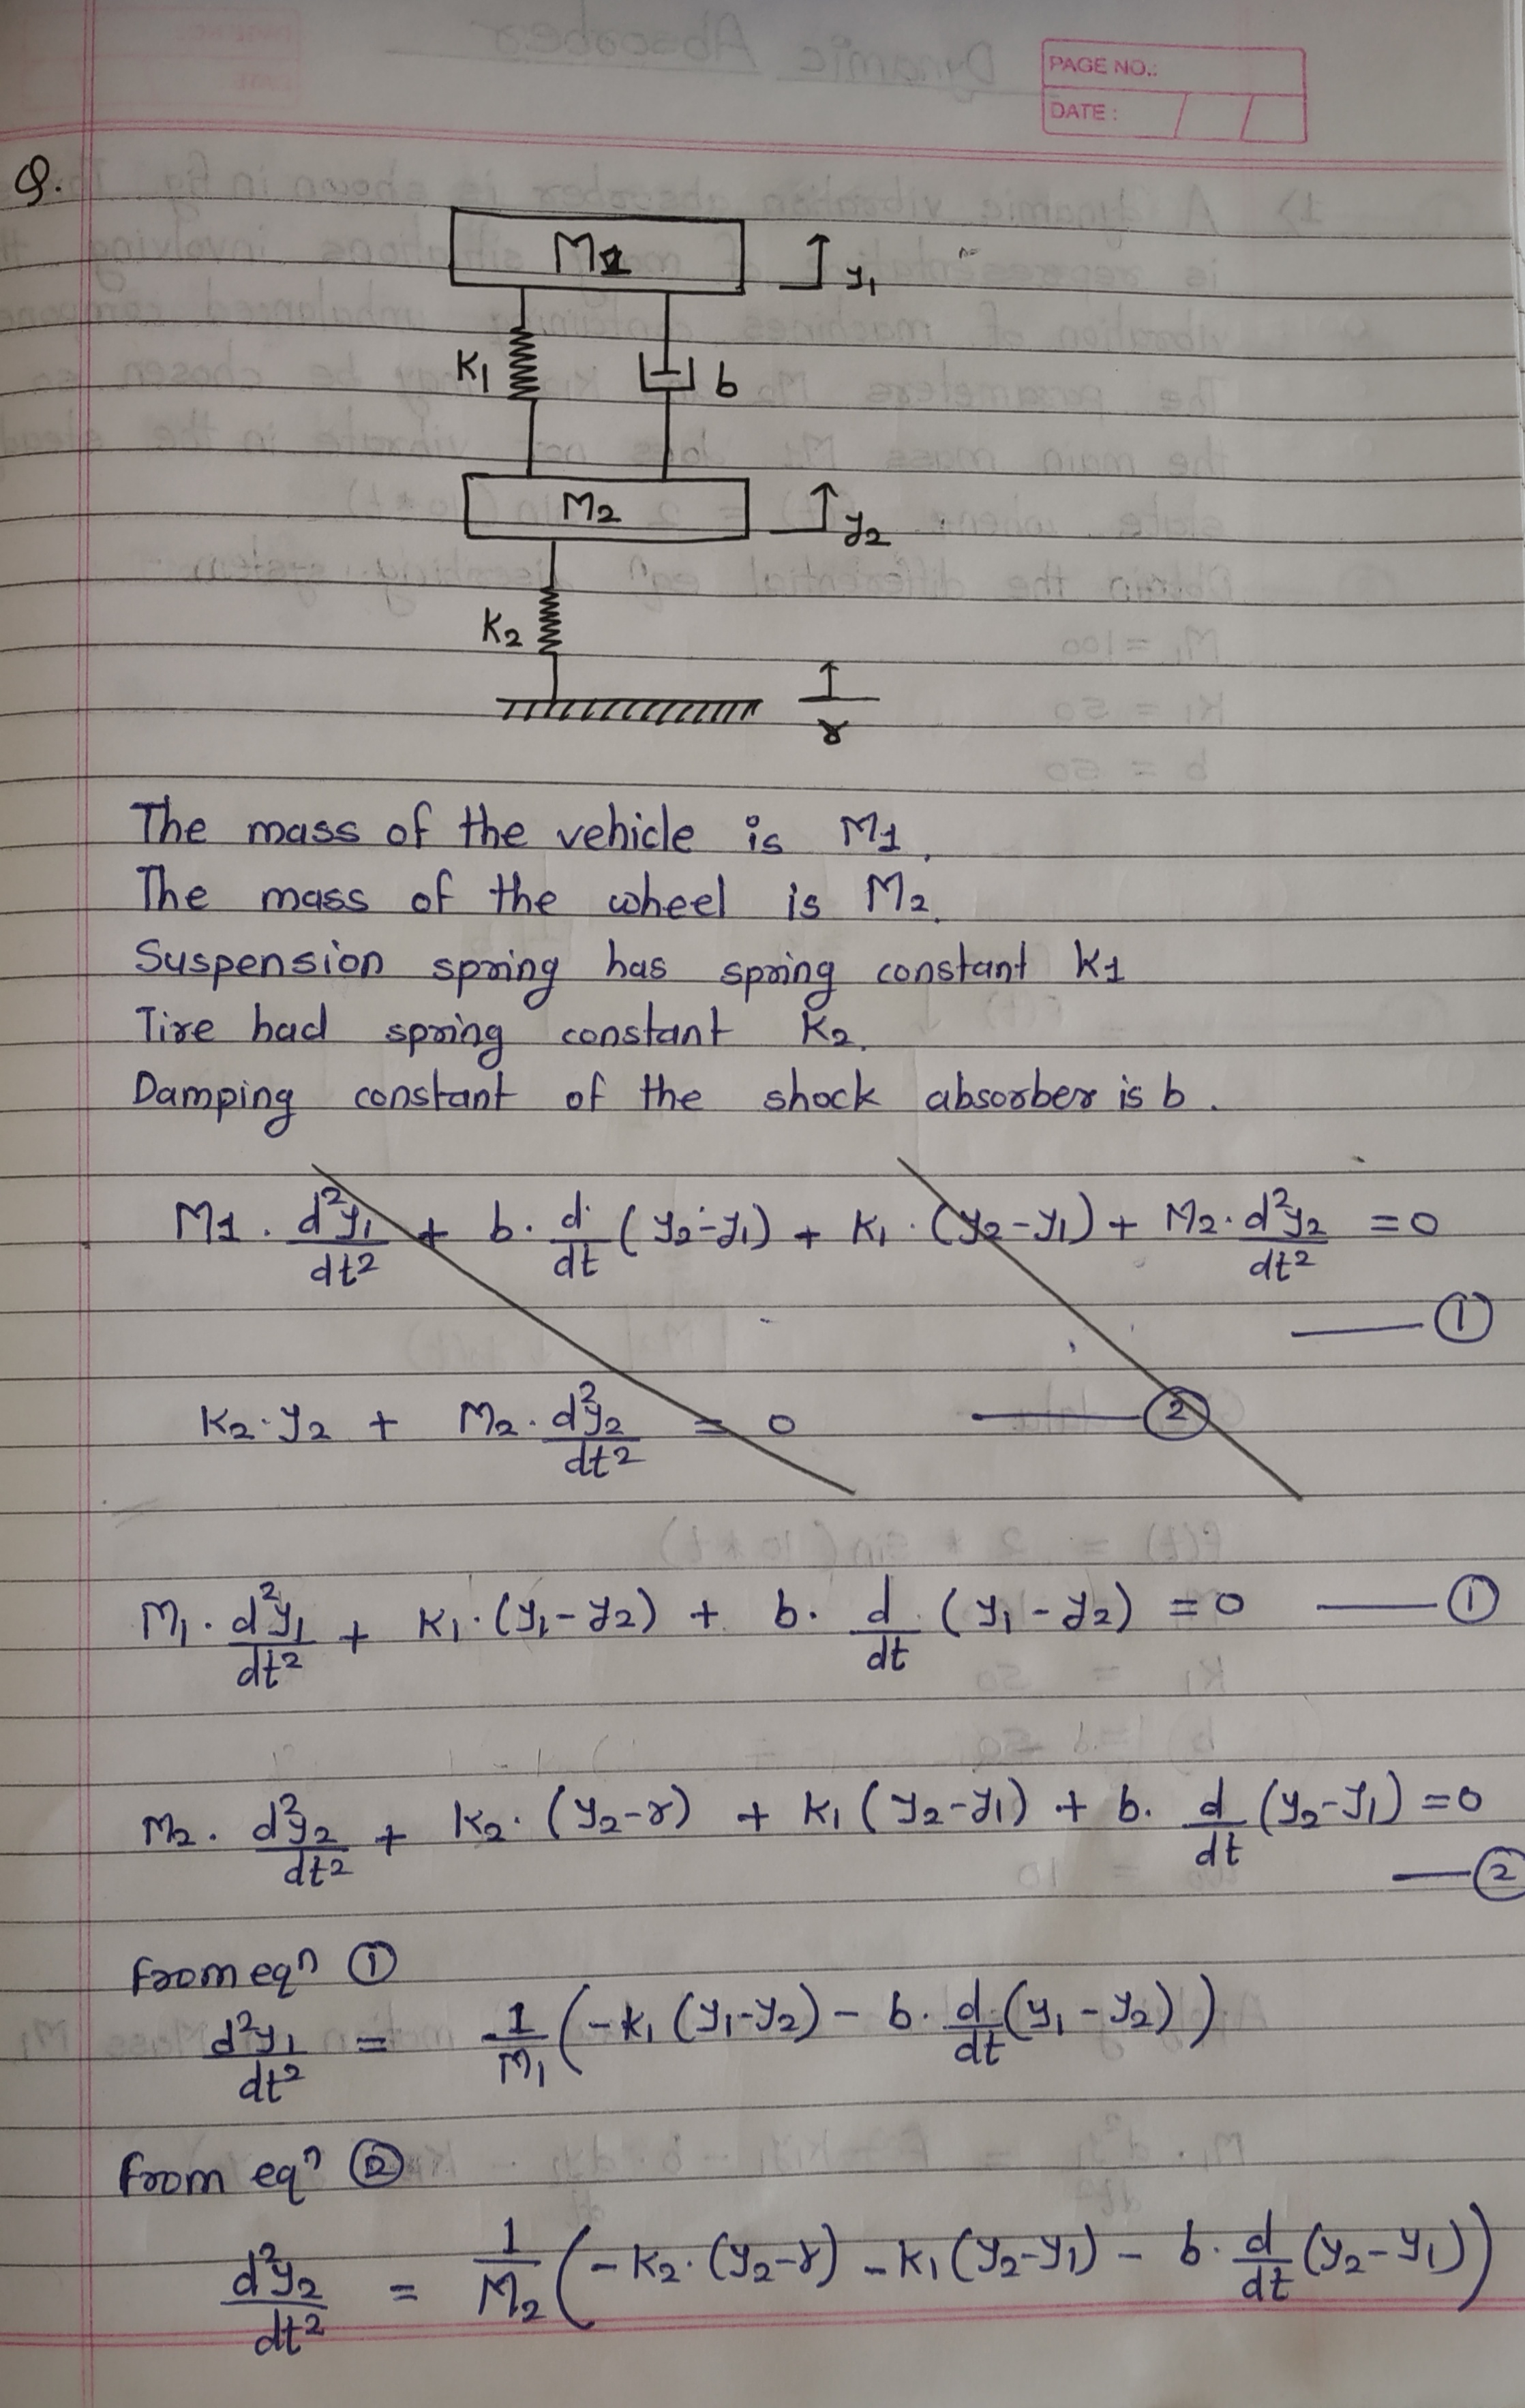 PAGE NO.:
DATE :
Q.
M1
y1
K1
b
M2
y2
K2
r
The mass of the vehicle is M1.
The mass of the wheel is M2.
Suspension spring has spring constant K1
Tire had spring constant K2.
Damping constant of the shock absorber is b.
M1 . d²y1/dt² + b. d/dt (y2-y1) + K1 . (y2-y1) + M2. d²y2/dt² = 0
—— ①
K2.y2 + M2. d²y2/dt² = 0 —— ②
M1 . d²y1/dt² + K1 . (y1-y2) + b. d/dt (y1-y2) = 0 —— ①
M2 . d²y2/dt² + K2. (y2-r) + K1 (y2-y1) + b. d/dt (y2-y1) = 0
—— ②
from eqn ①
d²y1/dt² = 1/M1 (-K1 (y1-y2) - b. d/dt (y1-y2))
from eqn ②
d²y2/dt² = 1/M2 (-K2. (y2-r) - K1 (y2-y1) - b. d/dt (y2-y1))